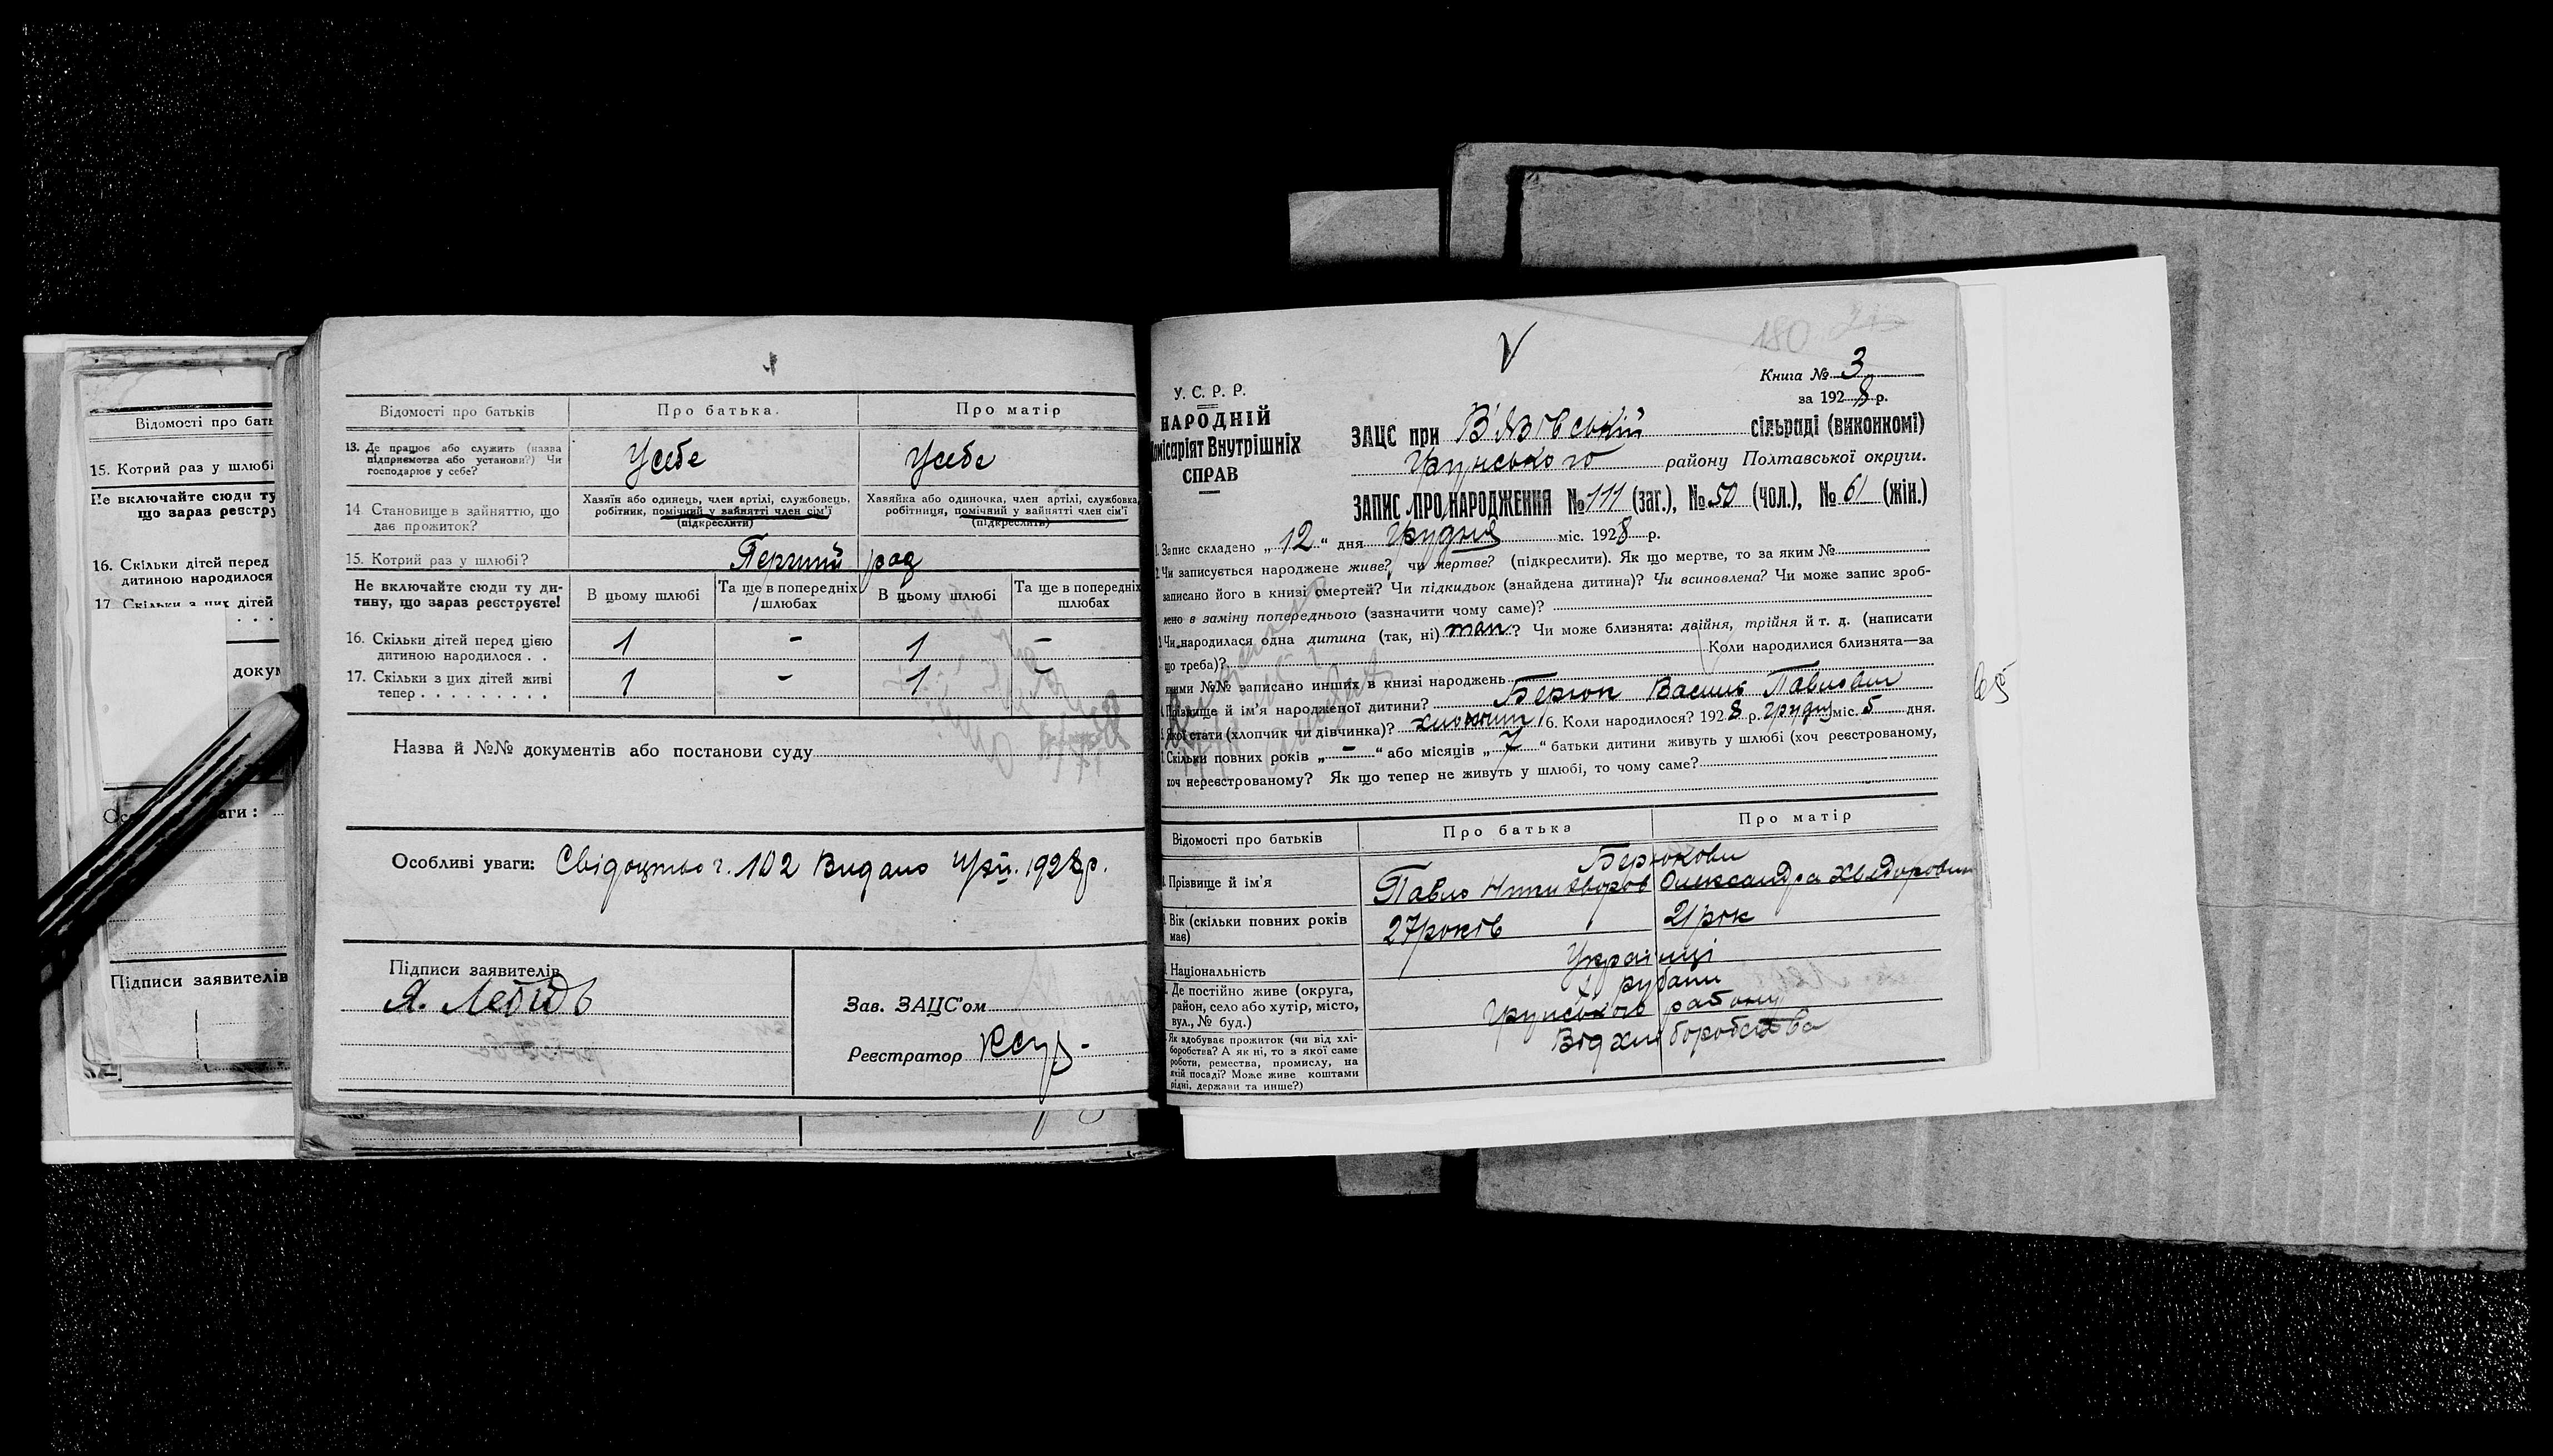 Відомості про бать
15. Котрий раз у шлюбі
Не включайте сюди ту
що зараз реєстру
16. Скільки дітей перед
дитиною народилося
17. Скільки з цих дітей
докум
аги:
Підписи заявителів
Відомості про батьків
Про батька.
Про матір
13. Де працює або служить (назва
підприємства або установи?) Чи
господарює у себе?
Усебе
Усебе
14. Становище в зайняттю, що
дає прожиток?
Хазяїн або одинець, член артілі, службовець,
робітник, помічний у зайнятті член сім'ї
(підкреслити)
Хазяйка або одиночка, член артілі, службовка,
робітниця, помічний у зайнятті член сім'ї
(підкреслити)
15. Котрий раз у шлюбі?
Перший раз
Не включайте сюди ту ди-
тину, що зараз реєструєте!
В цьому шлюбі
Та ще в попередніх
шлюбах
В цьому шлюбі
Та ще в попередніх
шлюбах
16. Скільки дітей перед цією
дитиною народилося . .
1 – 1 –
17. Скільки з цих дітей живі
тепер . . . . . . . . . .
1 – 1 –
Назва й №№ документів або постанови суду
Особливі уваги: Свідоцтво ч. 102 Видано 1928р.
Підписи заявителів
Я. Лебідь
Зав. ЗАЦС'ом
Реєстратор
180
Книга № 3
за 1928 р.
У. С. Р. Р.
НАРОДНІЙ
омісаріят Внутрішніх
СПРАВ
ЗАЦС при В'язівській сільраді (виконкомі)
Грунського району Полтавської округи.
ЗАПИС ПРО НАРОДЖЕННЯ № 111 (заг.), № 50 (чол.), № 61 (жін.)
1. Запис складено „ 12 “ дня Грудня міс. 1928 р.
2. Чи записується народжене живе? чи мертве? (підкреслити). Як що мертве, то за яким №
записано його в книзі смертей? Чи підкидьок (знайдена дитина)? Чи всиновлена? Чи може запис зроб-
лено в заміну попереднього (зазначити чому саме)?
Чи народилася одна дитина (так, ні) так? Чи може близнята: двійня, трійня й т. д. (написати
що треба)? Коли народилися близнята—за
якими №№ записано инших в книзі народжень
Прізвище й ім'я народженої дитини? Берюк Василь Павлович
Якої стати (хлопчик чи дівчинка)? хлопчик 6. Коли народилося? 1928 р. грудня міс. 5 дня.
Скільки повних років „ – “ або місяців „ 7 “ батьки дитини живуть у шлюбі (хоч реєстрованому,
хоч нереєстрованому? Як що тепер не живуть у шлюбі, то чому саме?
65
Відомості про батьків
Про батька
Про матір
Прізвище й ім'я
Берюкови
Павло Никифоров Олександра Хведоровн
Вік (скільки повних років
має)
27 років
21 рік
Національність
Українці
Де постійно живе (округа,
район, село або хутір, місто,
вул., № буд.)
х. Рубани
Грунського району
Як здобуває прожиток (чи від хлі-
боробства? А як ні, то з якої саме
роботи, ремества, промислу, на
якій посаді? Може живе коштами
рідні, держави та инше?)
Від хліборобства